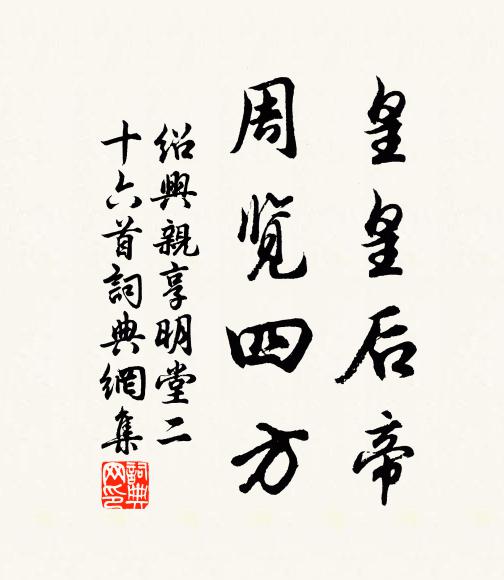 皇皇后帝
周览四方
绍興親享明堂二
十六首詞典網集
詞典网印